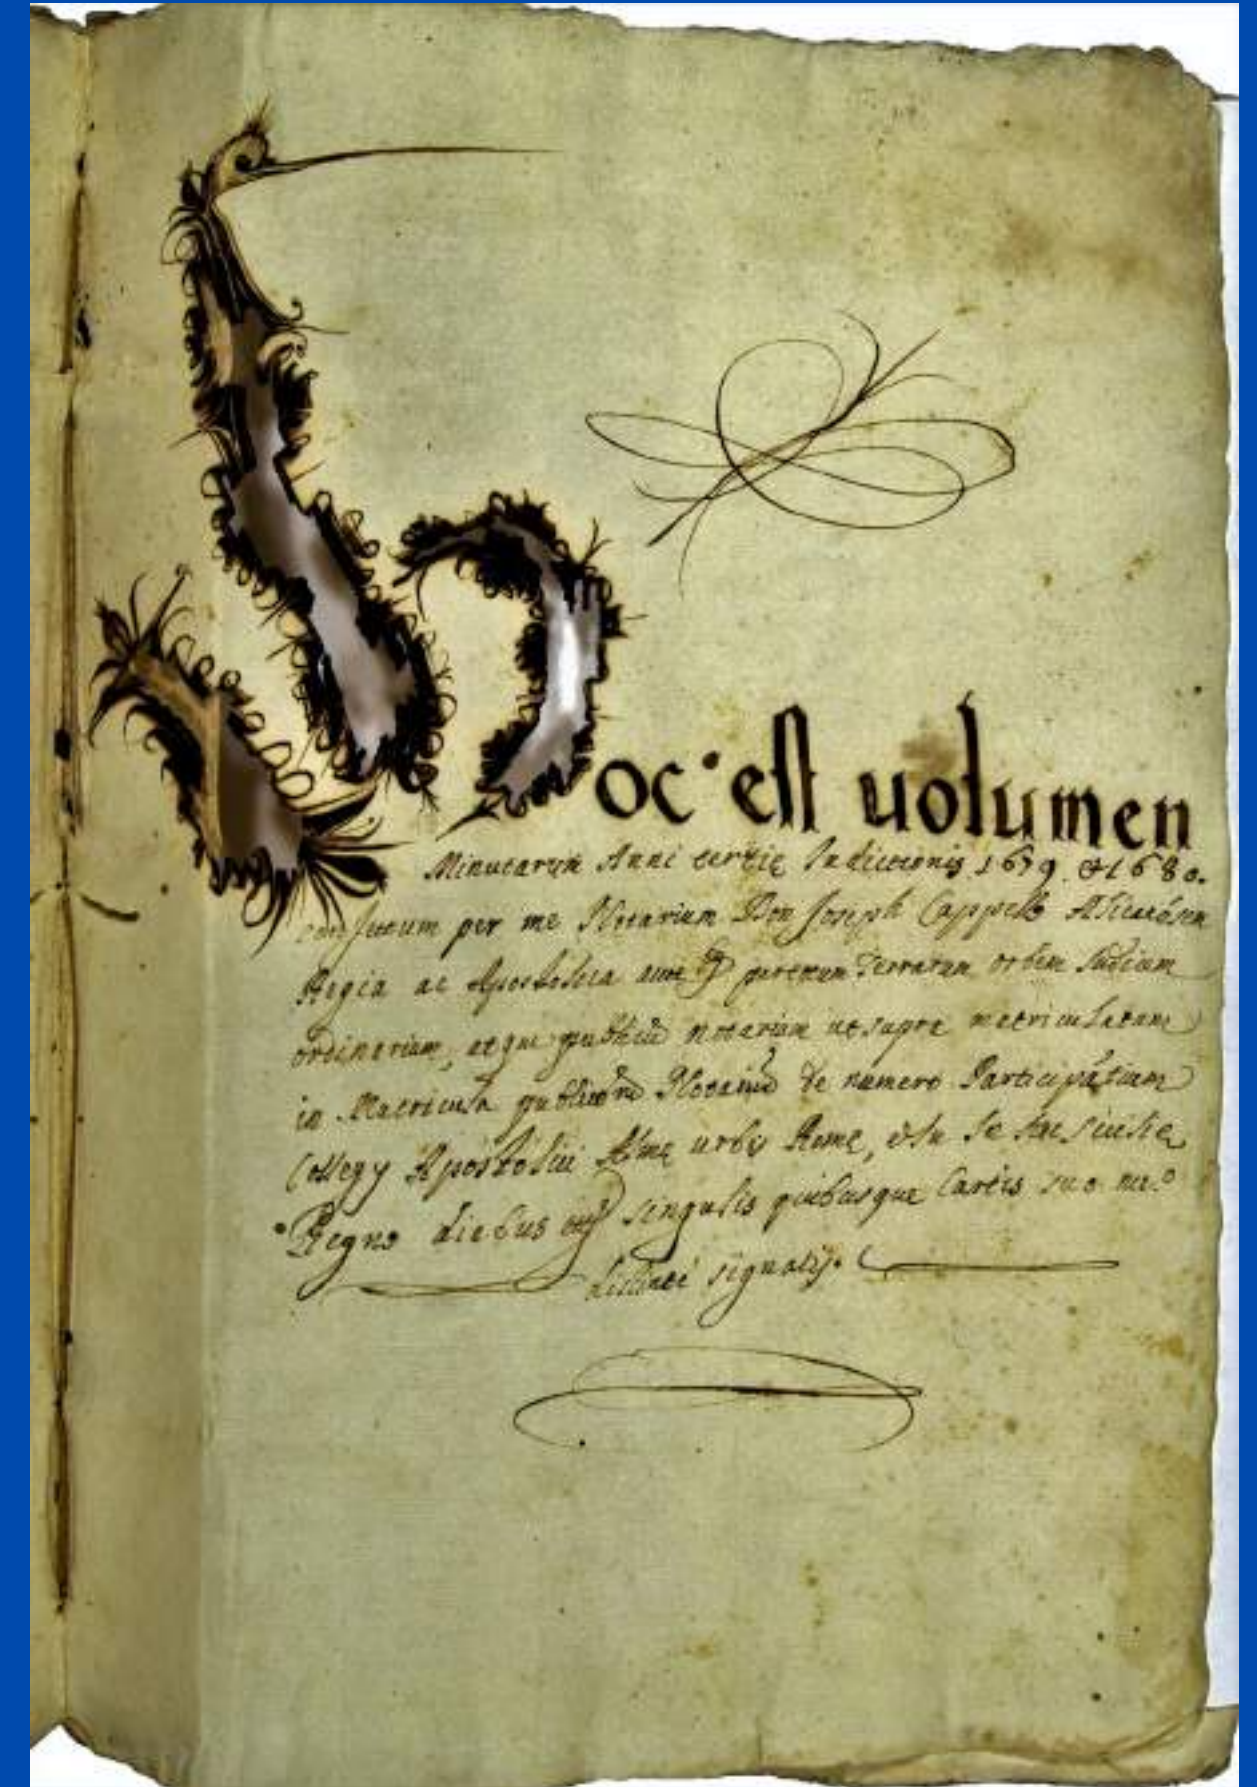 Hoc est uolumen
Minutarum Anni tertię Indictionis 1679. et 1680.
confectum per me Notarium Don Joseph Cappello
Regia ac Apostolica auct. per totum Terrarum orbem Iudicem
ordinarium, atque publicũ notarium ut supra matriculatum
in Matricula publicorũ Notariorũ de numero Participātium
Collegij Apostolici Almę urbis Romę, et In
Regno diebus singulis quibusque Cartis suo nu.o
signatis.